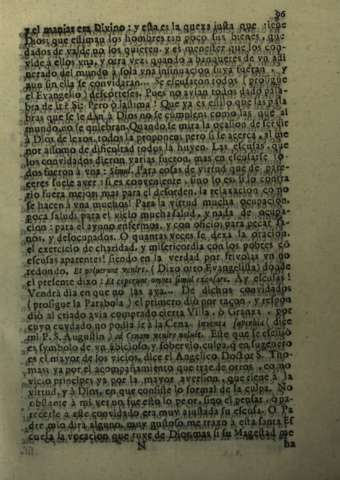 96
y el manjas era Divino: y esta es la quexa justa que tiene
Dios; que estiman los hombres tan poco sus bienes, que
dados de valde no los quieren, y es menester que los con-
vide à ellos vna, y otra vez; quando a banquetes de vn adi
nerado del mundo à sola vna insinuacion suya fueran, y
aun sin ella se convidaran. Se escusaron todos (prosigue
el Evangelio) descorteses. Pues no avian todos dado pala-
bra de ir? Si: Pero ò lastima! Que ya es estilo que las pala
bras que se le dan à Dios no se cumplen como las que al
mundo, no se quiebran. Quando se mira la ocasion de servir
à Dios de lexos, todos la proponen pero si se acerca, al me
nor assomo de dificultad todos la huyen. Las escusas, que
los convidados dieron varias fueron, mas en escusarse to-
dos fueron à vna: simul. Para cosas de virtud que de pare-
ceres suele aver: si es conveniente, vno si es lo contra
rio fuera mejor mas para el desorden, la relaxacion como
se hacen à vna muchos! Para la virtud mucha ocupacion,
poca salud; para el vicio mucha salud, y nada de ocupa-
cion: para el ayuno enfermos, y con oficio; para pecar sa-
nos, y desocupados. O quantas veces se dexa la oracion,
el exercicio de charidad, y misericordia con los pobres cõ
escusas aparentes! siendo en la verdad por frivolas vn no
redondo, Et noluerunt venire. (Dixo otro Evangelista) donde
el presente dixo: Et cœperunt omnes simul excusare. Ay escusas!
Vendrá dia en que no las aya... De dichos convidados
(prosigue la Parabola) el primero diò por raçon, y respon
diò al criado avia comprado cierta Villa, ò Granxa, por
cuyo cuydado no podia ir à la Cena.
mi P. S. Augustin) Este que se escusò
es symbolo de vn ambicioso, y sobervio; culpa, q en su genero
es el mayor de los vicios, dice el Angelico Doctor S. Tho-
mas: ya por el acompañamiento que trae de otros, como
vicio principe; ya por la mayor aversion, que tiene à la
virtud, y à Dios, en que consiste lo formal de la culpa. No
obstante à mi ver no fue esto lo peor, sino el pensar, ò pa-
recerle a este convidado era muy ajustada su escusa. O Pa
dre mio dirà alguno, muy gustoso me traxo à esta santa Es
cuela la vocacion que tuve de Dios, mas si su Magestad me
N
ha